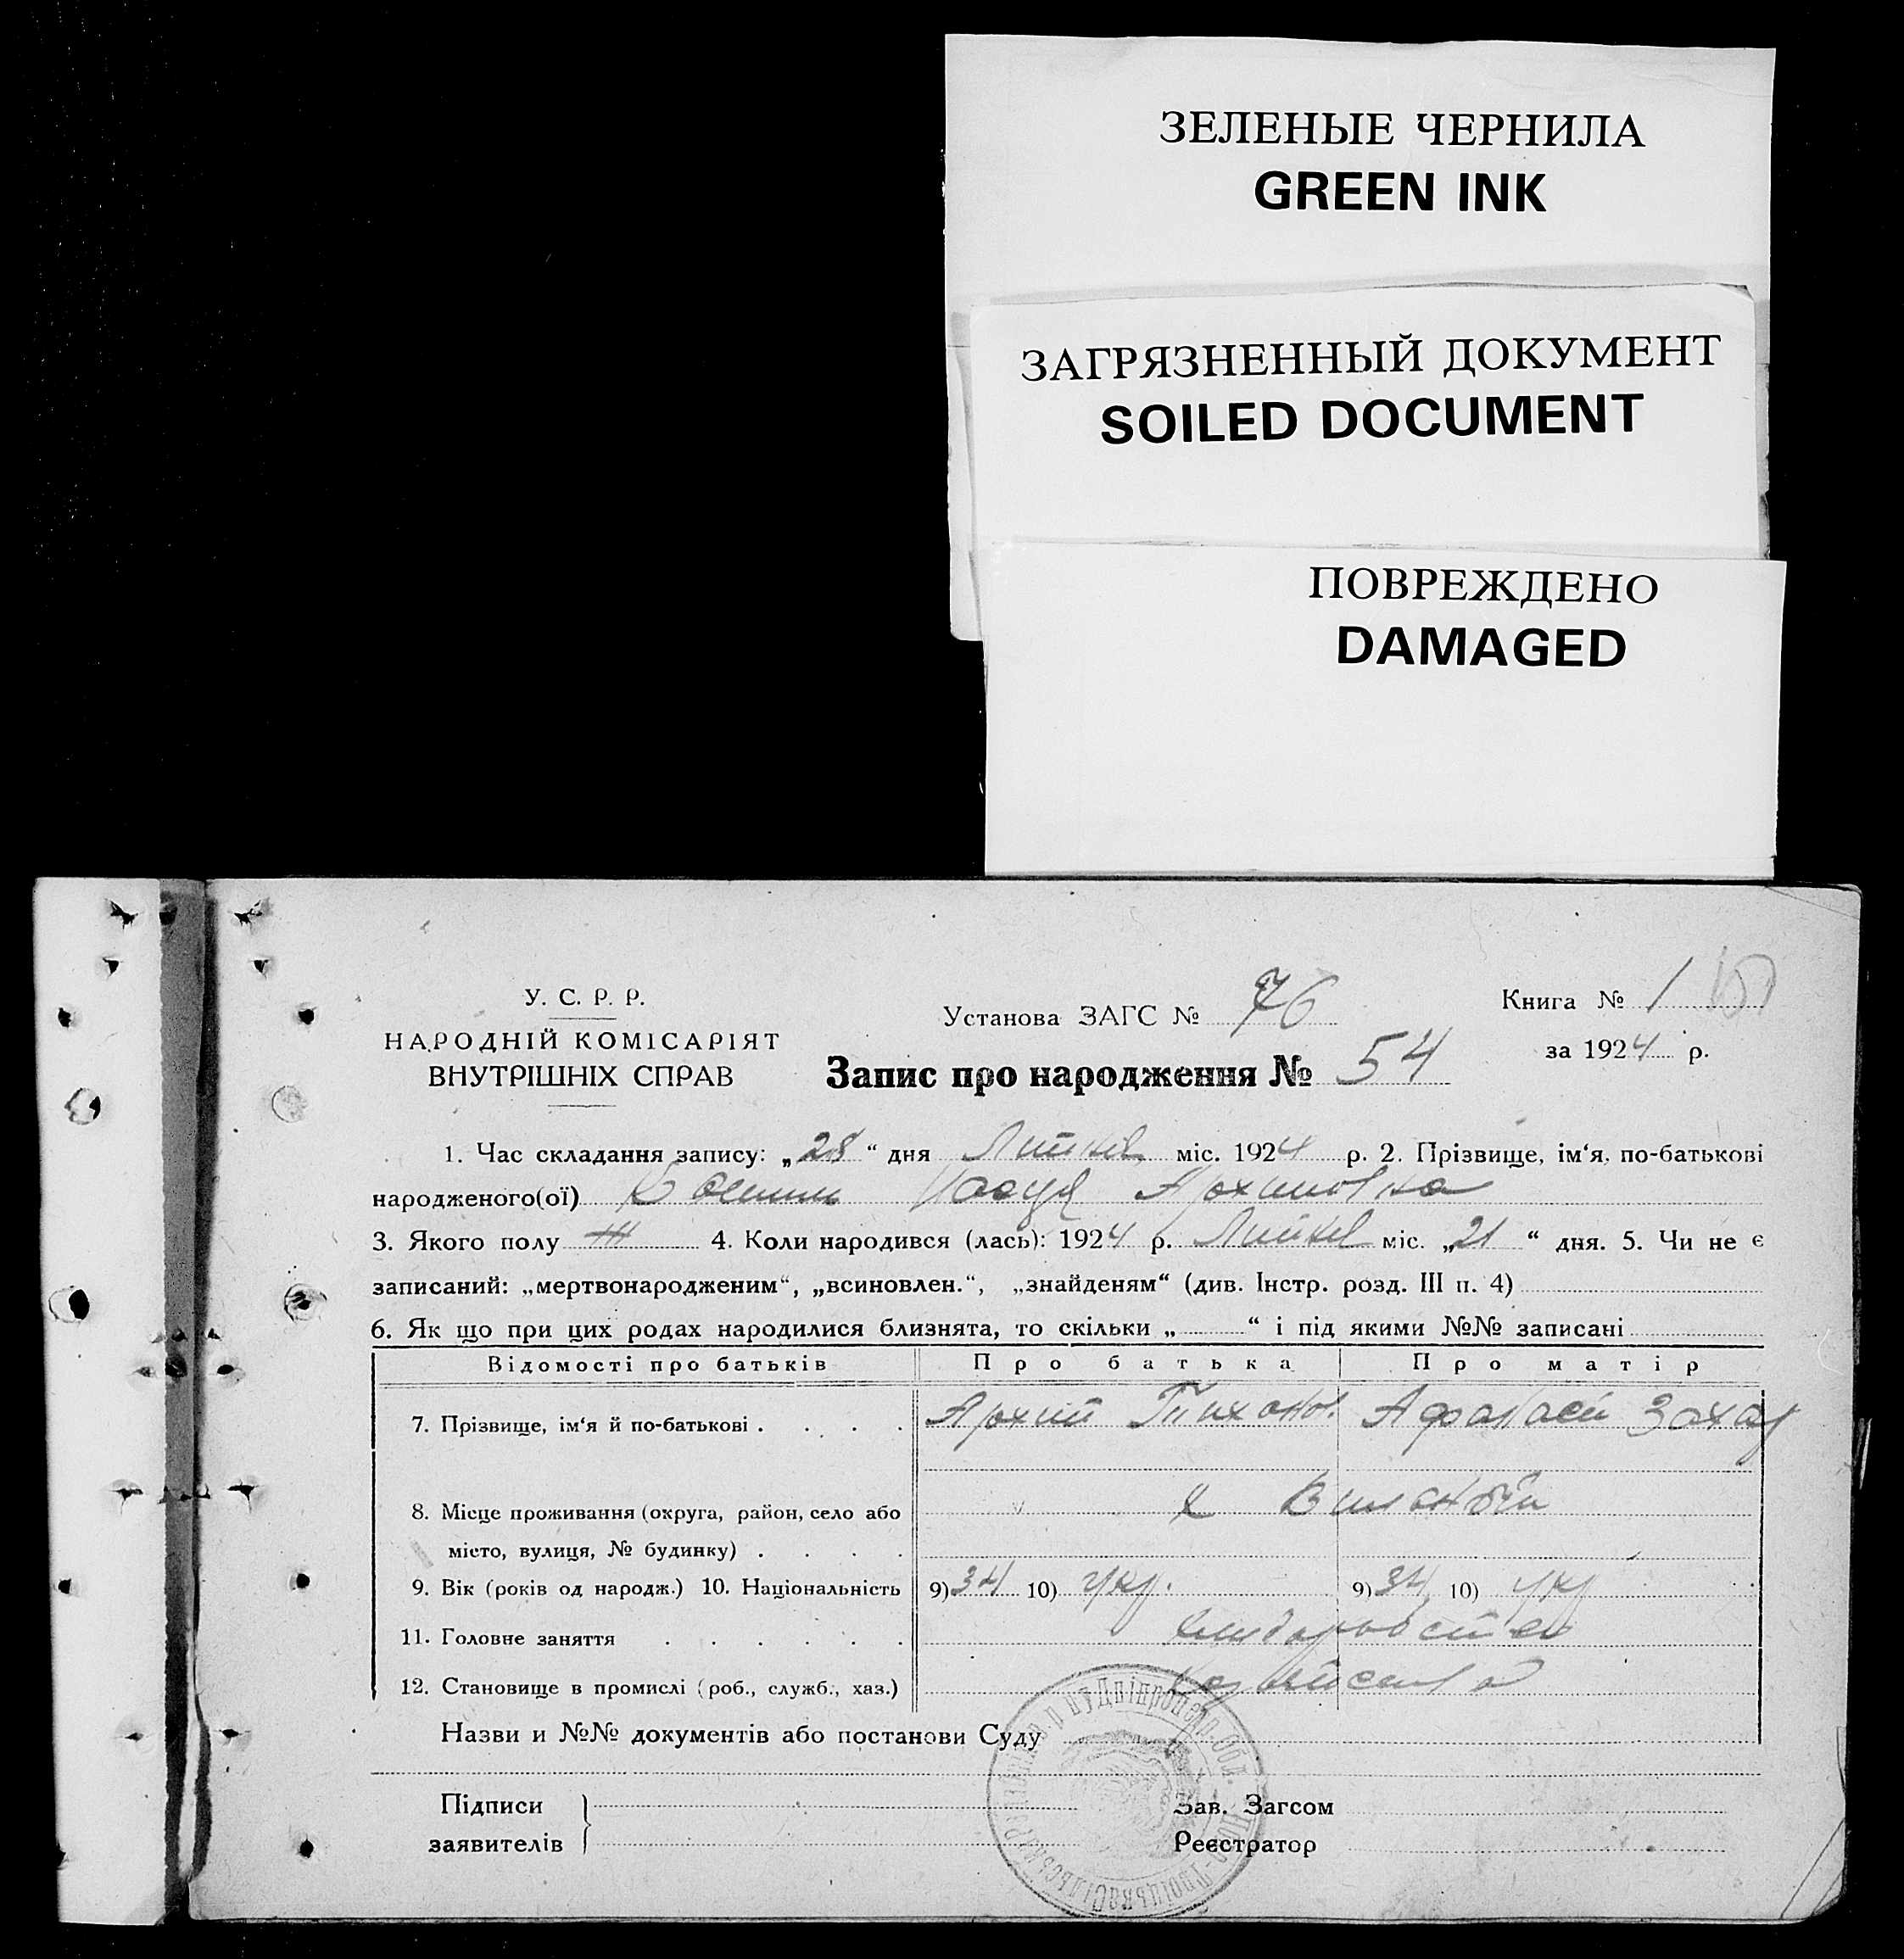 ЗЕЛЕНЫЕ ЧЕРНИЛА
GREEN INK
ЗАГРЯЗНЕННЫЙ ДОКУМЕНТ
SOILED DOCUMENT
ПОВРЕЖДЕНО
DAMAGED
У. С. Р. Р.
НАРОДНІЙ КОМІСАРІЯТ
ВНУТРІШНІХ СПРАВ
Установа ЗАГС № 76
Книга № 1
за 1924 р.
Запис про народження № 54
1. Час складання запису: „28“ дня міс. 1924 р. 2. Прізвище, ім‘я, по-батькові
народженого(ої) Архиповна
3. Якого полу 4. Коли народився (лась): 1924 р. міс. „21“ дня. 5. Чи не є
записаний: „мертвонародженим“, „всиновлен.“, „знайденям“ (див. Інстр. розд. III п. 4)
6. Як що при цих родах народилися близнята, то скільки „ “ і під якими №№ записані
Відомості про батьків Про батька Про матір
7. Прізвище, ім‘я й по-батькові . . . . . Архип Тихонов. Афанасій Захар
8. Місце проживання (округа, район, село або
місто, вулиця, № будинку) . . . .
9. Вік (років од народж.) 10. Національність 9) 34 10) укр. 9) 34 10) укр
11. Головне заняття . . . . . .
12. Становище в промислі (роб., служб., хаз.)
Назви и №№ документів або постанови Суду
Підписи
заявителів
Зав. Загсом
Реєстратор